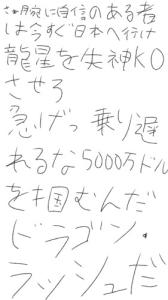 腕に自信のある者
は今すぐ日本へ行け
龍星を失神KO
させろ
急げっ乗り遅
れるな5000万ドル
を掴むんだ
ドラゴン・
ラッシュだ